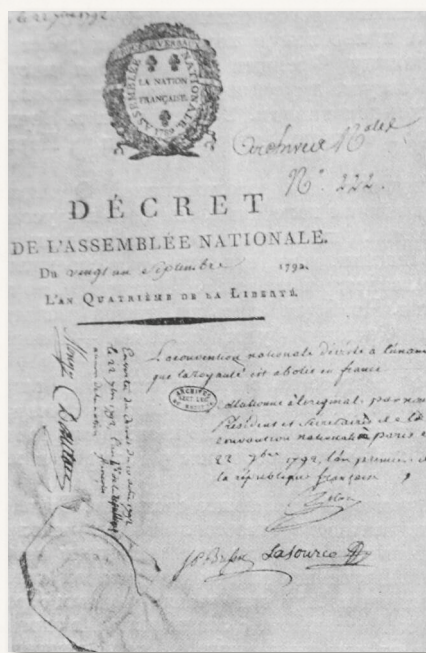 le 22 7bre 1792
ASSEMBLÉE NATIONALE
LA NATION
FRANÇAISE.
Archives Nales
No. 222.
DÉCRET
DE L'ASSEMBLÉE NATIONALE.
Du vingt un Septembre 1792.
L'AN QUATRIÈME DE LA LIBERTÉ.
La convention nationale décrète à l'unanim
que la Royauté est abolie en france
Collationné à l'original, par nous
Président et Secrétaires de la
convention nationale à paris le
22 7bre 1792, l'an premier de
la république françoise
ARCHIVES
Lasource
Monge
Danton
le 22 7bre 1792